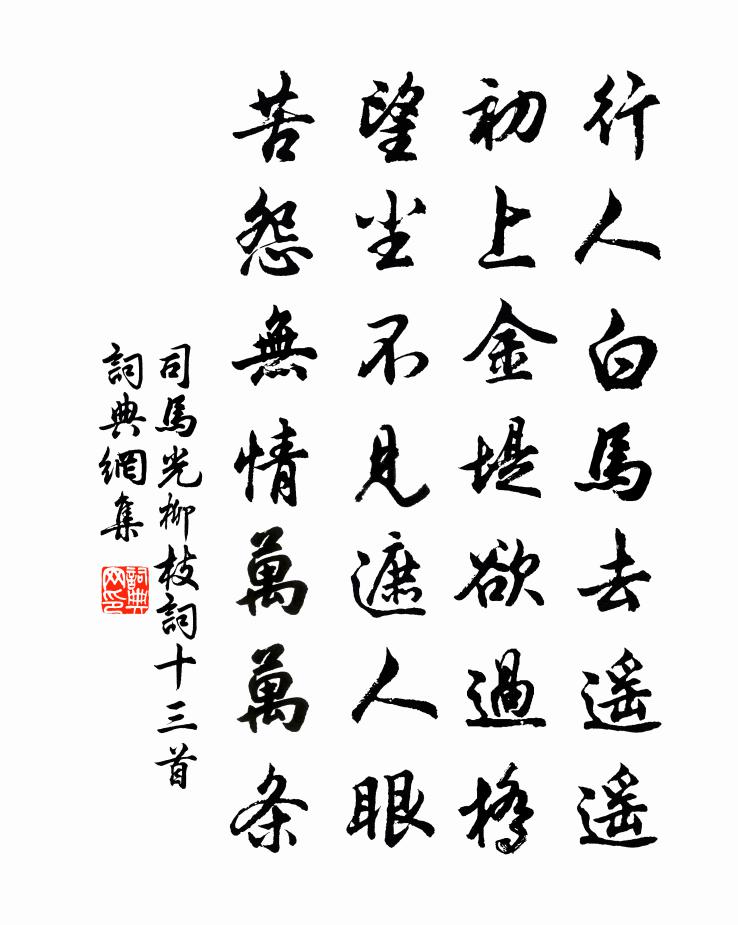 行人白馬去遥遥
初上金堤欲過橋
望尘不見遮人眼
苦怨無情萬萬条
司馬光柳枝詞十三首
詞典網集
詞典網印